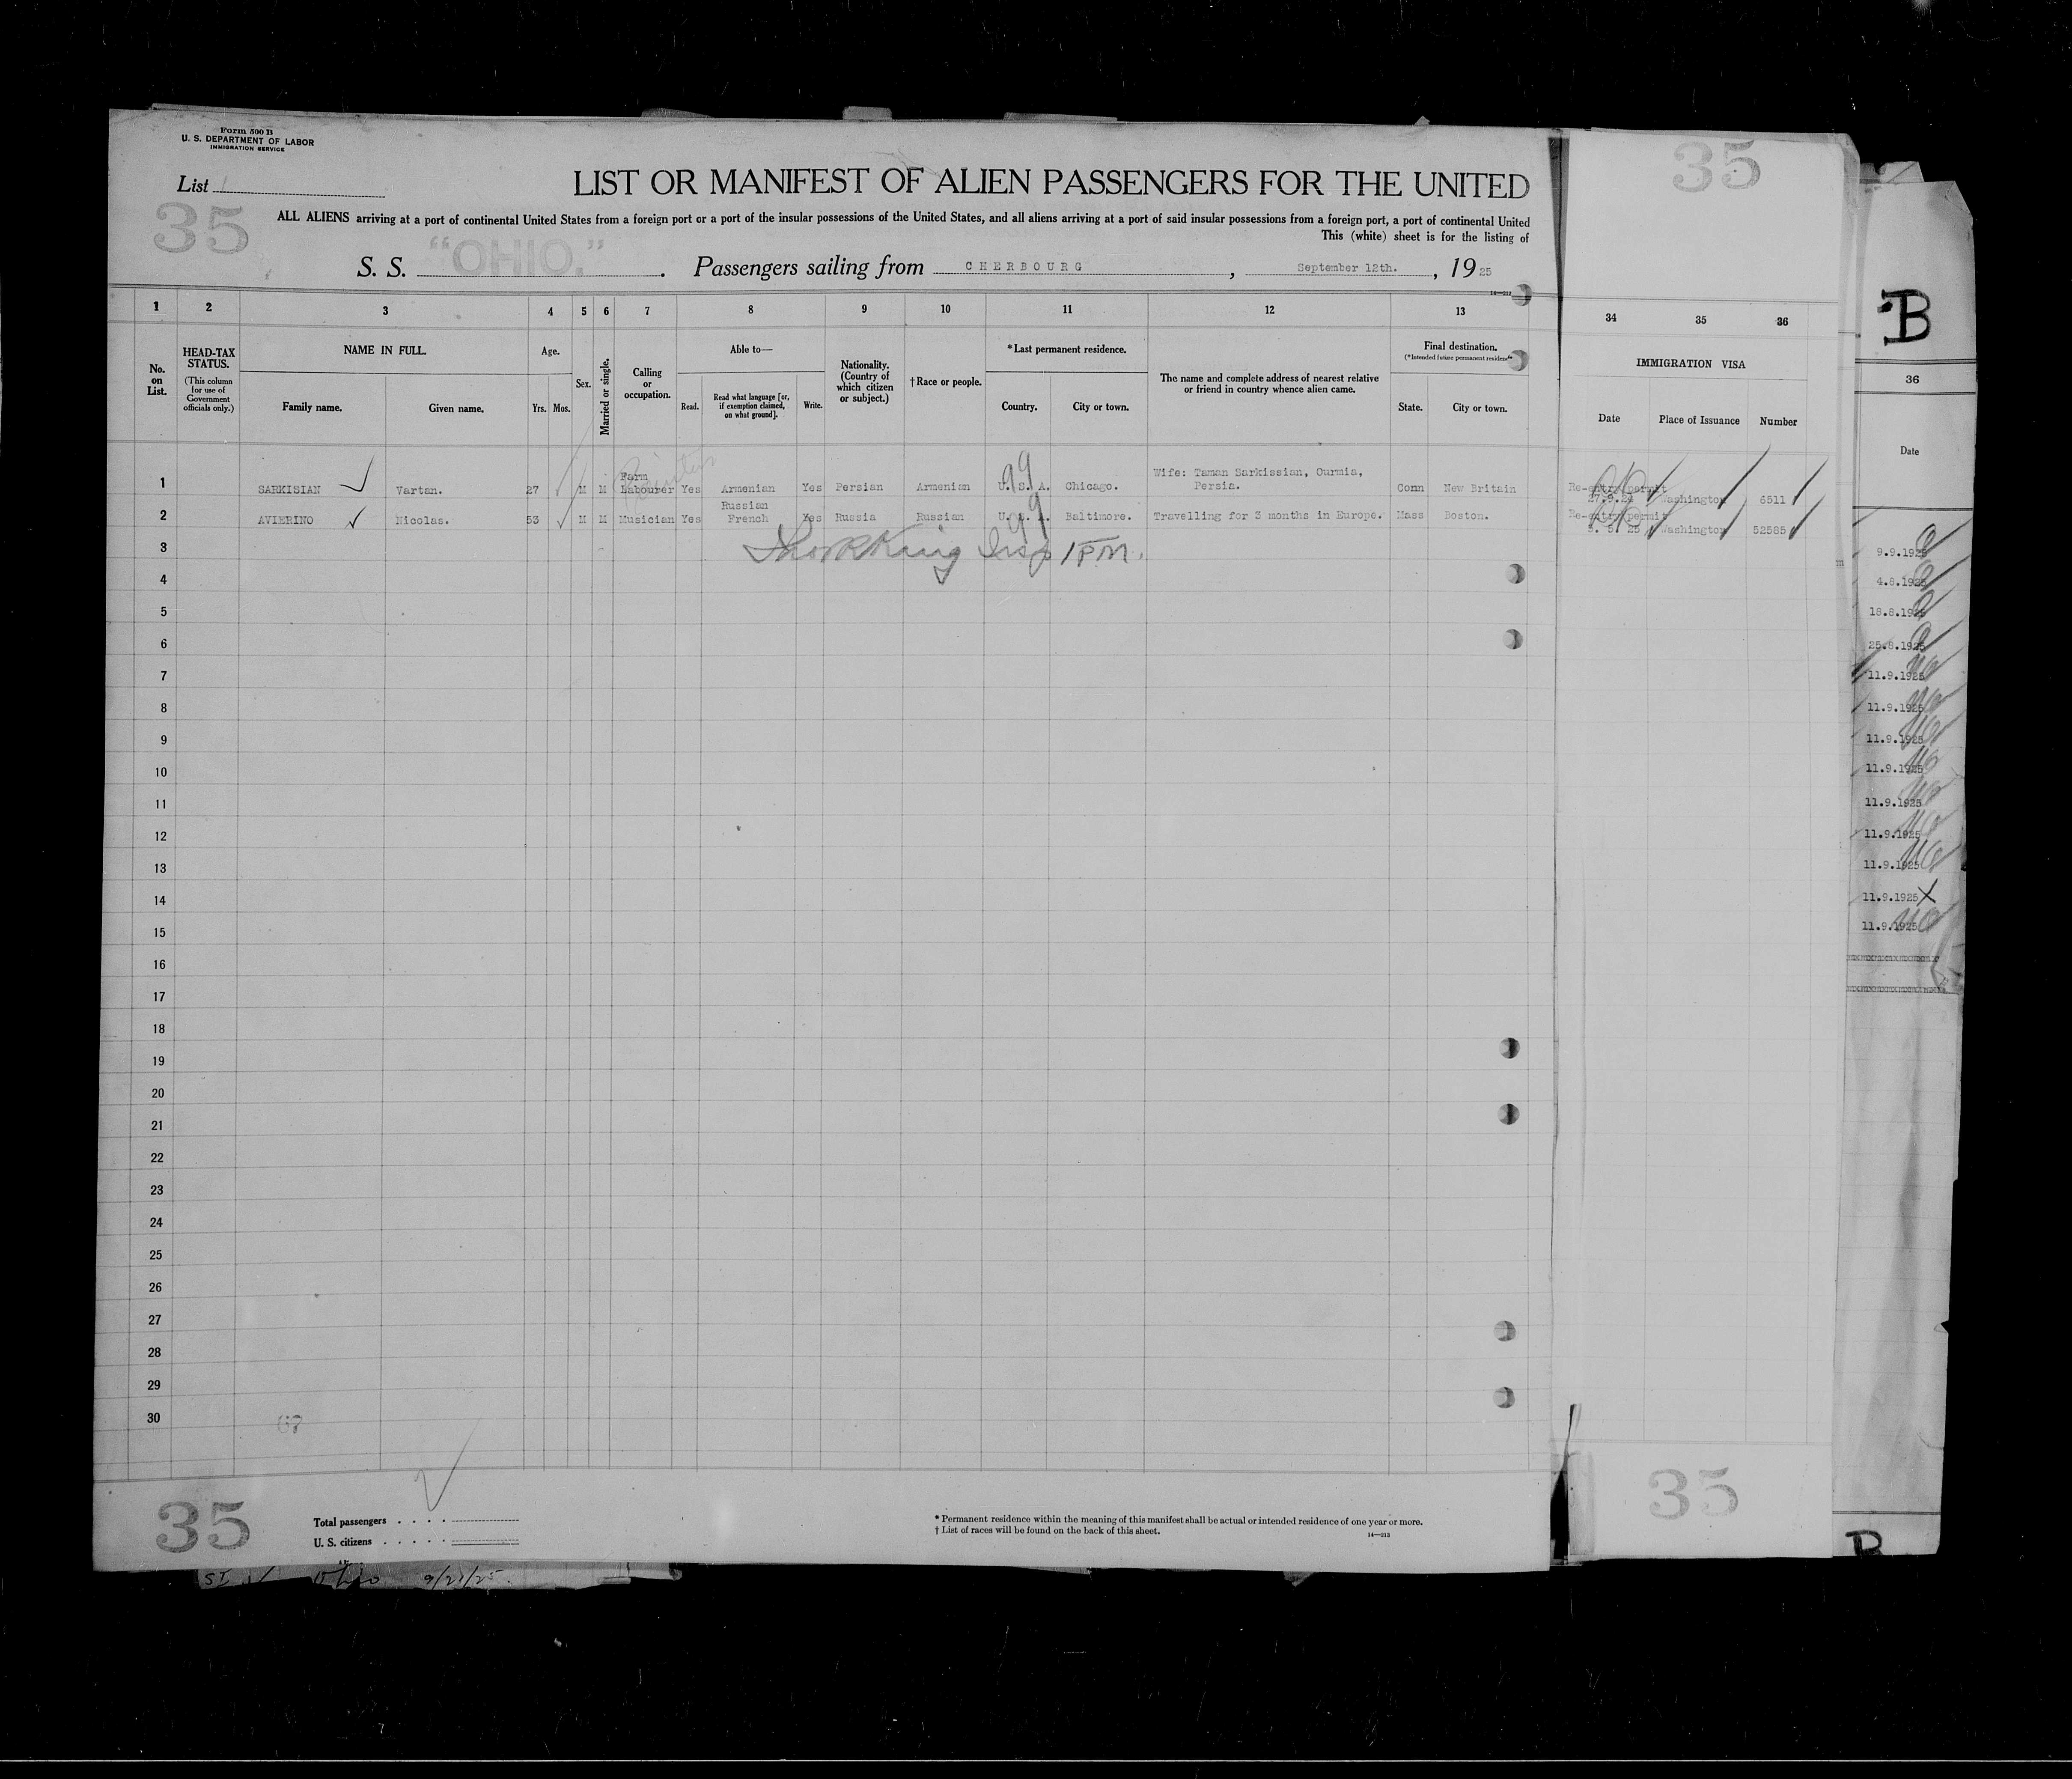 Form 500 B
U. S. DEPARTMENT OF LABOR
IMMIGRATION SERVICE
List
35
35
LIST OR MANIFEST OF ALIEN PASSENGERS FOR THE UNITED
ALL ALIENS arriving at a port of continental United States from a foreign port or a port of the insular possessions of the United States, and all aliens arriving at a port of said insular possessions from a foreign port, a port of continental United
This (white) sheet is for the listing of
S. S. "OHIO." Passengers sailing from CHERBOURG, September 12th., 1925
B
1 2 3 4 5 6 7 8 9 10 11 12 13 34 35 36
36
No. on List.
HEAD-TAX STATUS.
(This column for use of Government officials only.)
NAME IN FULL.
Family name. Given name.
Age.
Yrs. Mos.
Sex.
Married or single.
Calling or occupation.
Able to—
Read. Read what language [or, if exemption claimed, on what ground]. Write.
Nationality. (Country of which citizen or subject.)
†Race or people.
*Last permanent residence.
Country. City or town.
The name and complete address of nearest relative or friend in country whence alien came.
Final destination.
(*Intended future permanent residence)
State. City or town.
IMMIGRATION VISA
Date Place of Issuance Number
Date
1 SARKISIAN Vartan. 27 M M Farm Labourer Yes Armenian Yes Persian Armenian U. S. A. Chicago. Wife: Taman Sarkissian, Ourmia, Persia. Conn New Britain Re-entry permit 27.9.24 Washington 6511
2 AVIERINO Nicolas. 53 M M Musician Yes Russian French Yes Russia Russian U. S. A. Baltimore. Travelling for 3 months in Europe. Mass Boston. Re-entry permit 5. 5. 25 Washington 52585
3
4
5
6
7
8
9
10
11
12
13
14
15
16
17
18
19
20
21
22
23
24
25
26
27
28
29
30
9.9.1925
4.8.1925
18.8.1925
25.8.1925
11.9.1925
11.9.1925
11.9.1925
11.9.1925
11.9.1925
11.9.1925
11.9.1925
11.9.1925
11.9.1925
67
35
35
B
Total passengers
U. S. citizens
* Permanent residence within the meaning of this manifest shall be actual or intended residence of one year or more.
† List of races will be found on the back of this sheet.
14—213
Ohio 9/21/25.